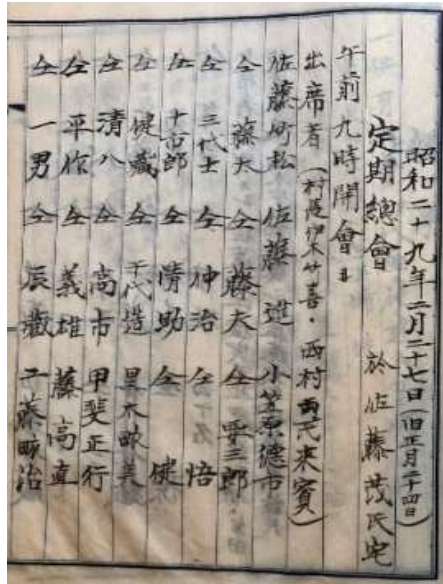 昭和二十九年二月二十七日(旧正月二十四日)
定期總會 於佐藤茂氏宅
午前九時開會ス
出席者(村長伊木竹喜・西村両氏来賓)
佐藤町松 佐藤進 小笠原德市
仝 藤大 仝 藤夫 仝 要三郎
仝 三代士 仝 仲治 仝 悟
仝 十市郎 仝 情助 仝 健
仝 健藏 千代造 黒木畩美
仝 清八 仝 高市 甲斐正行
仝 平作 仝 義雄 藤高直
仝 一男 仝 辰藏 工藤畩治